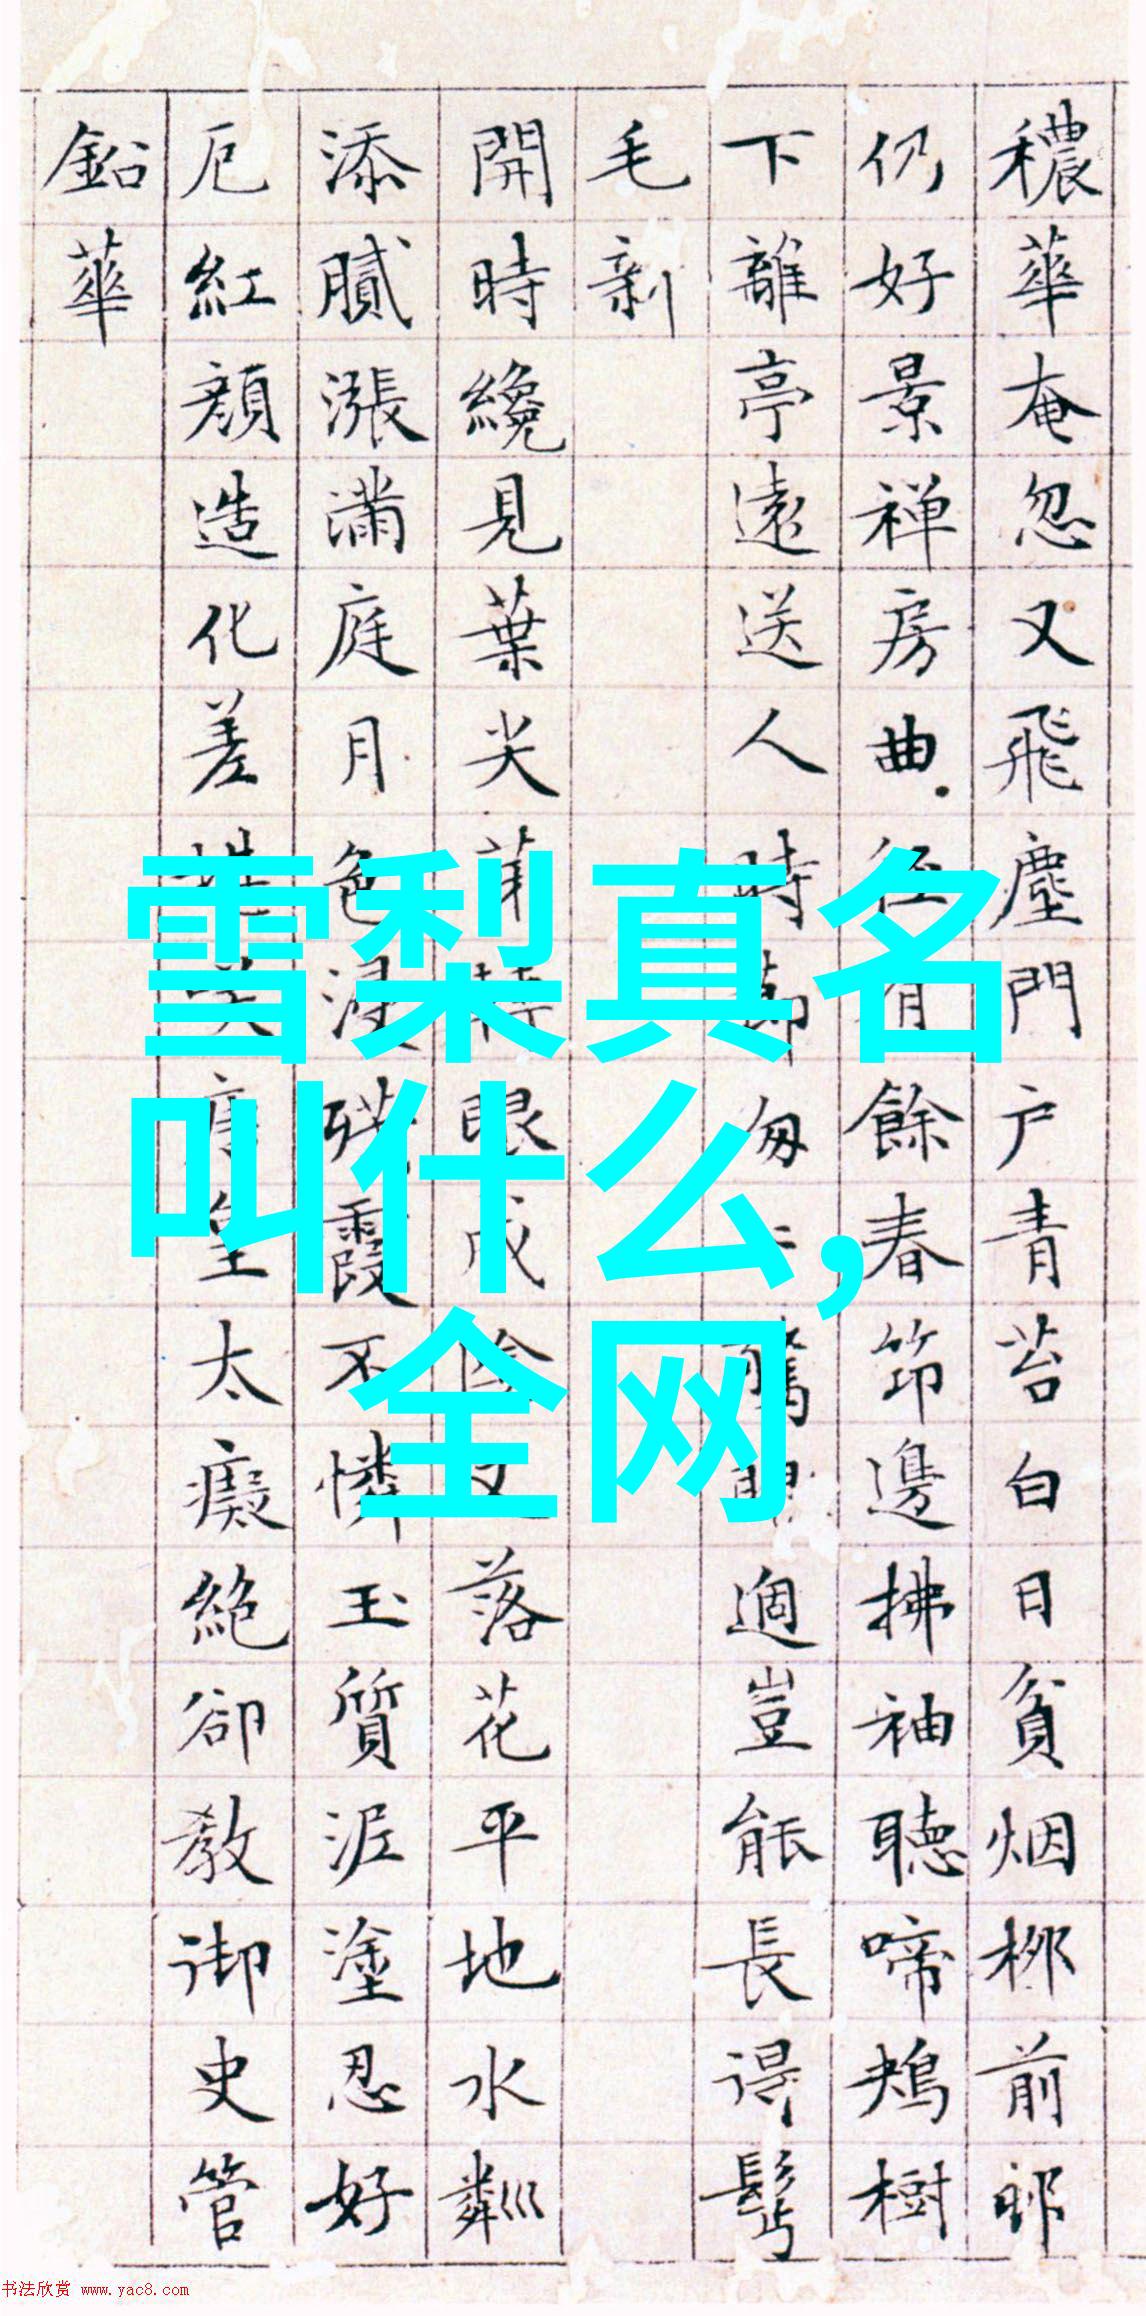 穠華奄忽又飛塵門戶青苔白日貧烟柳前郎
仍好景禅房曲径有餘春笻邊拂袖聽啼鴂樹
下離亭遠送人時節匆匆驚聞適豈能長得髩
毛新
開時纔見葉尖落花平地水粼巛
添膩漲滿庭月色浸殘霞不憐玉質泥塗忍好
厄紅顏造化差太癡絕卻教御史管
鉛華
雪梨真名
叫什么,
全网
书法欣赏 www.yac8.com